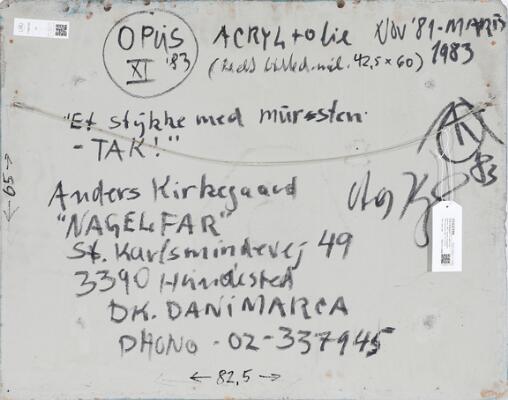 OPUS
XI '83
ACRYL + olie Nov '81 - MARTS
1983
mål. 42,5 x 60)
"Et stykke med mürssten
- TAK!"
83
← 65 →
Anders Kirkegaard
"NAGELFAR"
St. Karlsmindevej 49
3390 Hundested
DK. DANIMARCA
PHONO - 02-337945
← 82,5 →